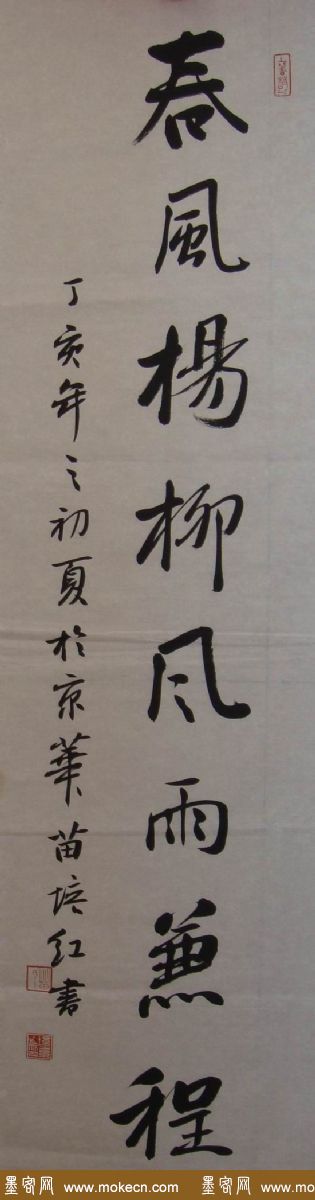 春風楊柳风雨兼程
丁亥年之初夏於京華苗培红書
墨客网 www.mokecn.com 墨客网 www.mo